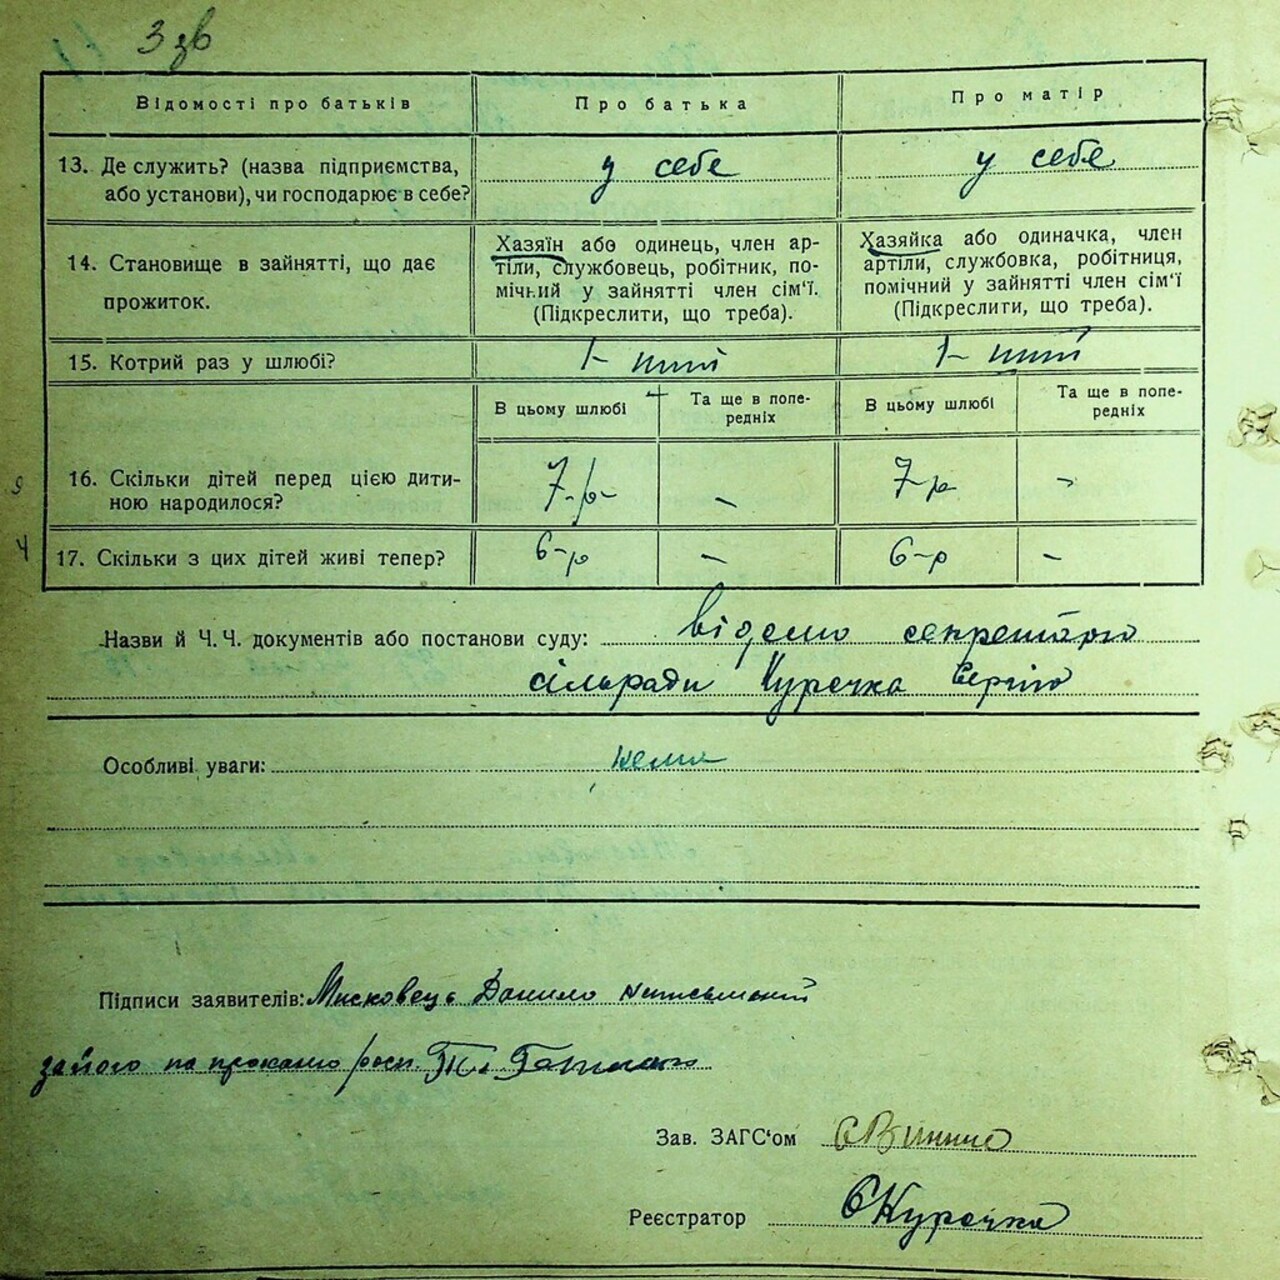 3 зв
Відомості про батьків
Про батька
Про матір
13. Де служить? (назва підприємства,
або установи), чи господарює в себе?
у себе
у себе
14. Становище в зайнятті, що дає
прожиток.
Хазяїн або одинець, член ар-
тіли, службовець, робітник, по-
мічний у зайнятті член сім'ї.
(Підкреслити, що треба).
Хазяйка або одиначка, член
артіли, службовка, робітниця,
помічний у зайнятті член сім'ї
(Підкреслити, що треба).
15. Котрий раз у шлюбі?
1-ший
1-ший
В цьому шлюбі
Та ще в попе-
редніх
В цьому шлюбі
Та ще в попе-
редніх
16. Скільки дітей перед цією дити-
ною народилося?
7-р-
-
7-р
-
17. Скільки з цих дітей живі тепер?
6-р
-
6-р
-
9
4
Назви й Ч.Ч. документів або постанови суду: відемо секретарю
сільради Куречка Сергію
Особливі уваги: нема
Підписи заявителів: Мисковець Данило неписьмений
за його на прохання росп.
Зав. ЗАГС'ом
Реєстратор С Куречка